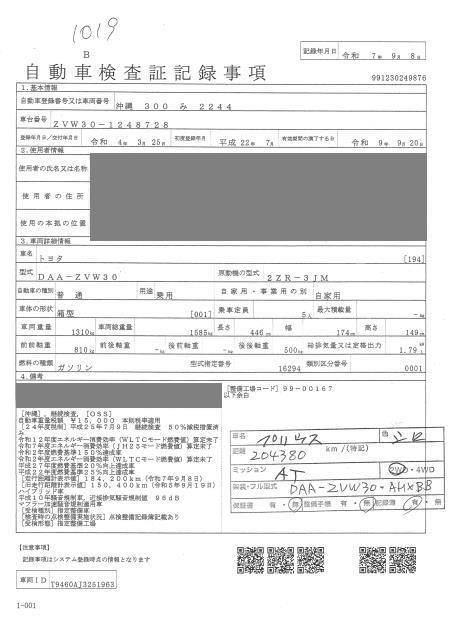 1019
B
自動車検査証記録事項
記録年月日 令和 7年 9月 8日
991230249876
1.基本情報
自動車登録番号又は車両番号 沖縄 300 み 2244
車台番号 ZVW30-1248728
登録年月日/交付年月日 令和 4年 3月 25日 初度登録年月 平成 22年 7月 有効期間の満了する日 令和 9年 9月 20日
2.使用者情報
使用者の氏名又は名称
使用者の住所
使用の本拠の位置
3.車両詳細情報
車名 トヨタ [194]
型式 DAA-ZVW30 原動機の型式 2ZR-3JM
自動車の種別 普通 用途 乗用 自家用・事業用の別 自家用
車体の形状 箱型 [001] 乗車定員 5人 最大積載量 -kg
車両重量 1310kg 車両総重量 1585kg 長さ 446cm 幅 174cm 高さ 149cm
前前軸重 810kg 前後軸重 -kg 後前軸重 -kg 後後軸重 500kg 総排気量又は定格出力 1.79L
燃料の種類 ガソリン 型式指定番号 16294 類別区分番号 0001
4.備考
[整備工場コード] 99-00167
以下余白
[沖縄], 継続検査, [OSS]
自動車重量税額 ¥15,000 本則税率適用
[24年度税制] 平成25年7月9日 継続検査 50%減税措置済み
令和12年度エネルギー消費効率(WLTCモード燃費値)算定未了
令和7年度エネルギー消費効率(JH25モード燃費値)算定未了
令和2年度燃費基準150%達成車
令和2年度エネルギー消費効率(WLTCモード燃費値)算定未了
平成27年度燃費基準20%向上達成車
平成22年度燃費基準25%向上達成車
[走行距離計表示値] 184,200km(令和7年9月8日)
[旧走行距離計表示値] 150,400km(令和5年9月19日)
ハイブリッド車
平成10年騒音規制車, 近接排気騒音規制値 96dB
マフラー加速騒音規制適用車
[受検種別] 指定整備車
[検査時の点検整備実施状況] 点検整備記録簿記載あり
[受検形態] 指定整備工場
車名 プリウス 色 シロ
距離 204380 km/(特記)
ミッション AT 2WD・4WD
類別・フル型式 DAA-ZVW30-AHXBB
保証書 有・無 整備手帳 有・無 記録簿 有・無
【注意事項】
記録事項はシステム登録時点の情報となります
車両ID T9460AJ3251963
1-001